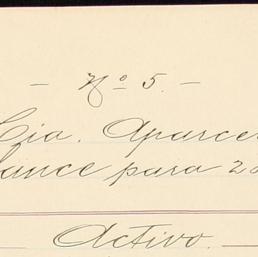 - Nº 5. -
Cia. Aparcer
lance para 28
Activo.